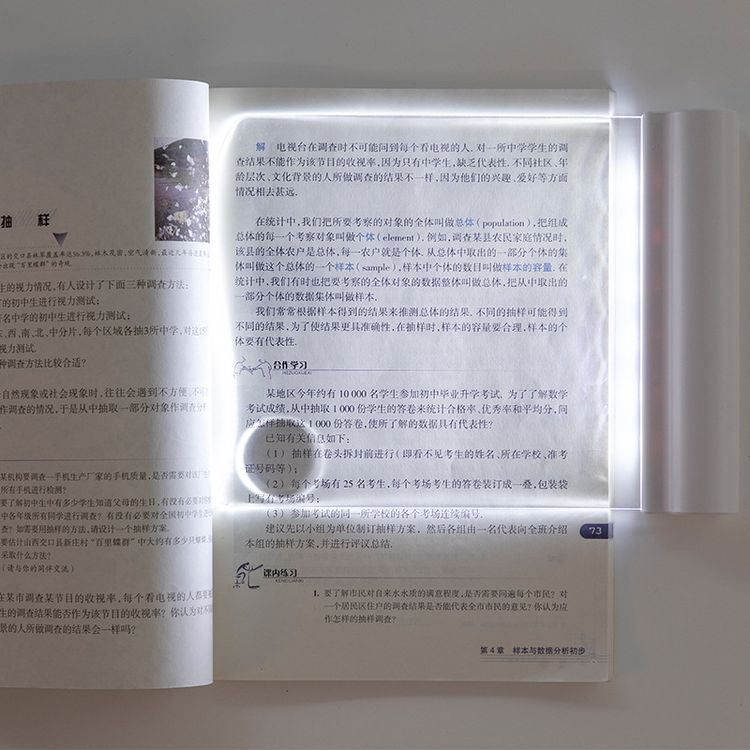 抽 样
区的交口县林草覆盖率达56.3%，林木茂密，空气清新，最近几年每
出现"百里蝶群"的奇观.
生的视力情况，有人设计了下面三种调查方法：
的初中生进行视力测试；
名中学的初中生进行视力测试；
东、西、南、北、中分片，每个区域各抽3所中学，对这
视力测试.
种调查方法比较合适？
自然现象或社会现象时，往往会遇到不方便、不可
作调查的情况，于是从中抽取一部分对象作调查分析
某机构要调查一手机生产厂家的手机质量，是否需要对该厂
所有手机进行检测？
要了解初中生中有多少学生知道父母的生日，有没有必要对
中各年级所有同学进行调查？有没有必要对全国初中学生
查？如需要用抽样的方法，请设计一个抽样方案.
要估计山西交口县新庄村"百里蝶群"中大约有多少只蝴蝶，
采取什么方法？
（请与你的同伴交流）
在某市调查某节目的收视率，每个看电视的人都要
生的调查结果能否作为该节目的收视率？你认为对不
景的人所做调查的结果会一样吗？
解 电视台在调查时不可能问到每个看电视的人. 对一所中学学生的调
查结果不能作为该节目的收视率，因为只有中学生，缺乏代表性. 不同社区、年
龄层次、文化背景的人所做调查的结果不一样，因为他们的兴趣、爱好等方面
情况相去甚远.
在统计中，我们把所要考察的对象的全体叫做总体（population），把组成
总体的每一个考察对象叫做个体（element）. 例如，调查某县农民家庭情况时，
该县的全体农户是总体，每一农户就是个体. 从总体中取出的一部分个体的集
体叫做这个总体的一个样本（sample），样本中个体的数目叫做样本的容量. 在
统计中，我们有时也把要考察的全体对象的数据整体叫做总体，把从中取出的
一部分个体的数据集体叫做样本.
我们常常根据样本得到的结果来推测总体的结果. 不同的抽样可能得到
不同的结果，为了使结果更具准确性，在抽样时，样本的容量要合理，样本的个
体要有代表性.
合作学习
HEZUOXUEXI
某地区今年约有 10 000 名学生参加初中毕业升学考试. 为了了解数学
考试成绩，从中抽取 1 000 份学生的答卷来统计合格率、优秀率和平均分，问
应怎样抽取这 1 000 份答卷，使所了解的数据具有代表性？
已知有关信息如下：
（1）抽样在卷头拆封前进行（即看不见考生的姓名、所在学校、准考
证号码等）；
（2）每个考场有 25 名考生，每个考场考生的答卷装订成一叠，包装袋
上写有考场编号；
（3）参加考试的同一所学校的各个考场连续编号.
建议先以小组为单位制订抽样方案，然后各组由一名代表向全班介绍
本组的抽样方案，并进行评议总结.
73
课内练习
KENEILIANXI
1. 要了解市民对自来水水质的满意程度，是否需要问遍每个市民？对
一个居民区住户的调查结果是否能代表全市市民的意见？你认为应
作怎样的抽样调查？
第 4 章 样本与数据分析初步